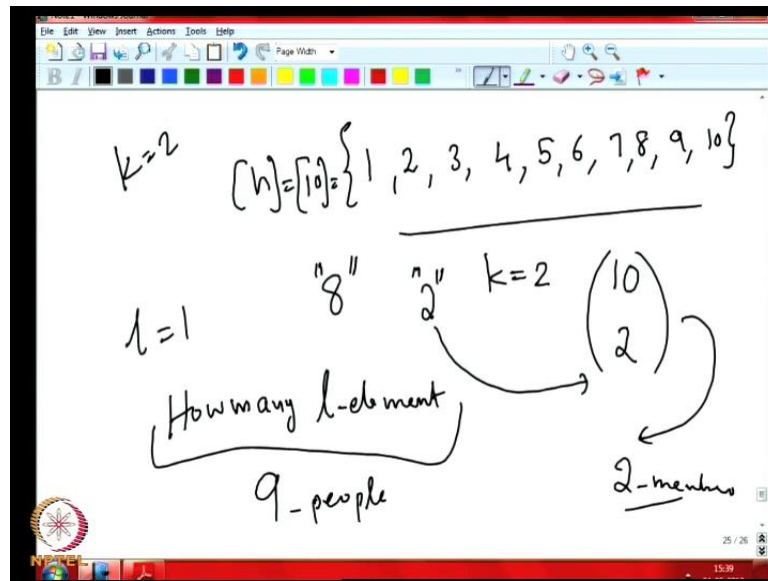 Note1 - Windows Journal
File Edit View Insert Actions Tools Help
Page Width
B I
k=2
[n]=[10]={1, 2, 3, 4, 5, 6, 7, 8, 9, 10}
"8" "2" k=2 (10
2)
l=1
How many l-element
9-people
2-members
25 / 26
NPTEL
15:39